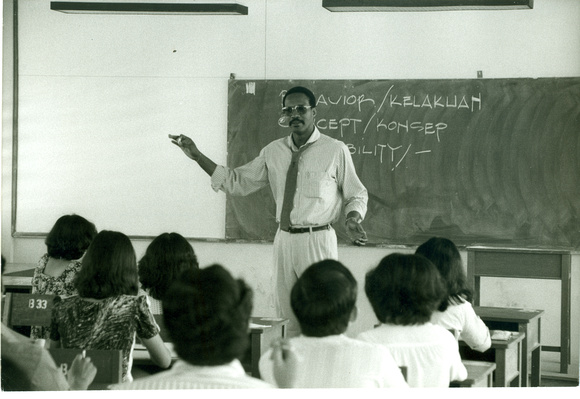 AVIOR/KELAKUAN
CEPT/KONSEP
BILITY/-
B33